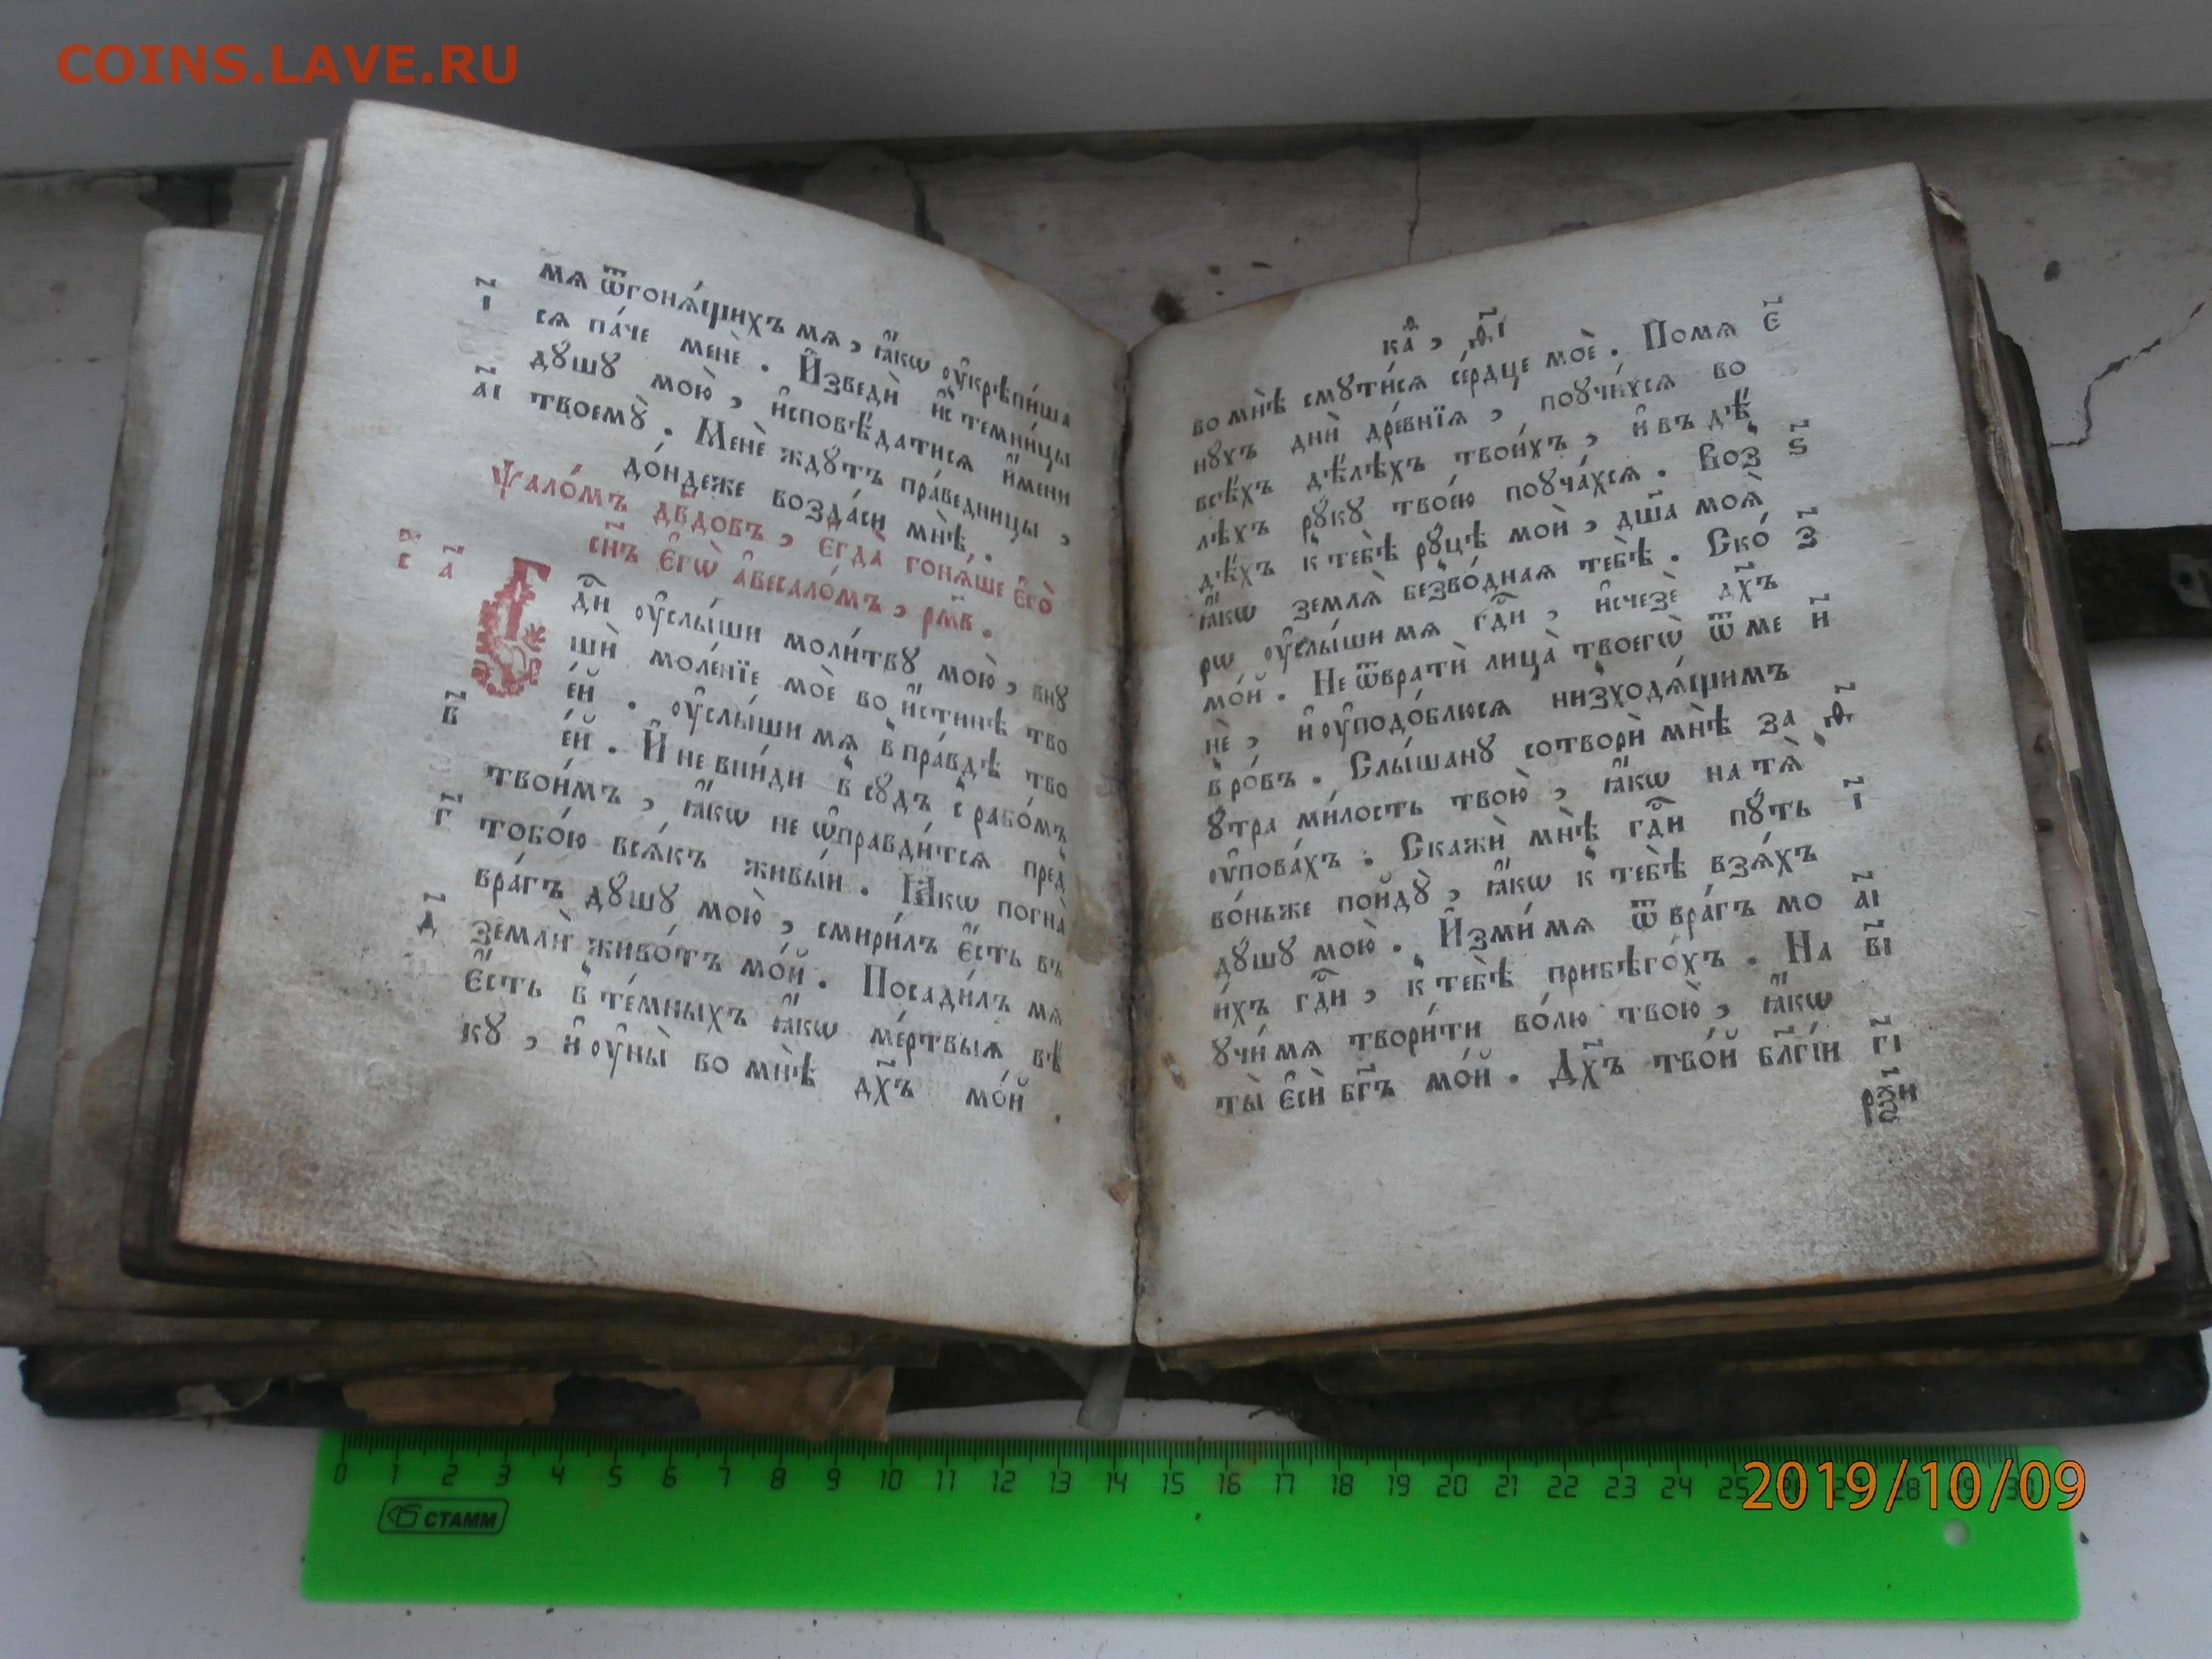 COINS.LAVE.RU
мѧ ѿгонѧ́щихъ мѧ, ꙗ҆́кѡ ᲂу҆крѣпи́ша
і҃
сѧ па́че менѐ. И҆зведѝ и҆с темни́цы
дꙋ́шꙋ мою̀, и҆сповѣ́датисѧ и҆́мени
а҃і
твоемꙋ̀. Менѐ ждꙋ́тъ пра́ведницы,
до́ндеже возда́си мнѣ̀.
Ѱало́мъ дв҃довъ, є҆гда̀ гонѧ́ше є҆го̀
сн҃ъ є҆гѡ̀ а҆весало́мъ, рм҃в.
с҃ а҃
Гдⷭ҇и ᲂу҆слы́ши моли́твꙋ мою̀, внꙋ
шѝ моле́нїе моѐ во и҆́стинѣ тво
е́й. ᲂу҆слы́ши мѧ в пра́вдѣ тво
в҃
е́й. И҆ не вни́ди в сꙋ́дъ с рабо́мъ
твои́мъ, ꙗ҆́кѡ не ѡ҆правди́тсѧ пред
г҃
тобо́ю всѧ́къ живы́и. Ꙗ҆́кѡ погна̀
вра́гъ дꙋ́шꙋ мою̀, смири́лъ є҆́сть въ
д҃
землѝ живо́тъ мо́й. Посади́лъ мѧ
є҆́сть в те́мныхъ ꙗ҆́кѡ ме́ртвыѧ вѣ́
кꙋ, и҆ ᲂу҆ны̀ во мнѣ̀ дх҃ъ мо́й.
каѳ, ѳ҃і
во мнѣ̀ смꙋти́сѧ се́рдце моѐ. Помѧ
є҃
нꙋ́хъ днѝ дре́внїѧ, поꙋчи́хсѧ во
всѣ́хъ дѣ́лѣхъ твои́хъ, и҆ въ дѣ́
лѣхъ рꙋкꙋ̀ твоє́ю поꙋча́хсѧ. Воз
ѕ҃
дѣ́хъ к тебѣ̀ рꙋ́цѣ моѝ, дш҃а моѧ̀
ꙗ҆́кѡ землѧ̀ безво́днаѧ тебѣ̀. Ско́
з҃
рѡ ᲂу҆слы́ши мѧ гдⷭ҇и, и҆счезѐ дх҃ъ
мо́й. Не ѿвратѝ лица̀ твоегѡ̀ ѿ ме
и҃
нѐ, и҆ ᲂу҆подо́блюсѧ низходѧ́щимъ
в ро́въ. Слы́шанꙋ сотворѝ мнѣ̀ за
ѳ҃
ꙋ́тра ми́лость твою̀, ꙗ҆́кѡ на тѧ̀
ᲂу҆пова́хъ. Скажѝ мнѣ̀ гдⷭ҇и пꙋ́ть
і҃
во́ньже пойдꙋ̀, ꙗ҆́кѡ к тебѣ̀ взѧ́хъ
дꙋ́шꙋ мою̀. И҆зми́ мѧ ѿ вра́гъ мо
а҃і
и́хъ гдⷭ҇и, к тебѣ̀ прибѣго́хъ. На
в҃і
ꙋчи́ мѧ твори́ти во́лю твою̀, ꙗ҆́кѡ
ты̀ є҆сѝ бг҃ъ мо́й. Дх҃ъ тво́й бл҃гі́и
г҃і
СТАММ
0 1 2 3 4 5 6 7 8 9 10 11 12 13 14 15 16 17 18 19 20 21 22 23 24 25 28
2019/10/09